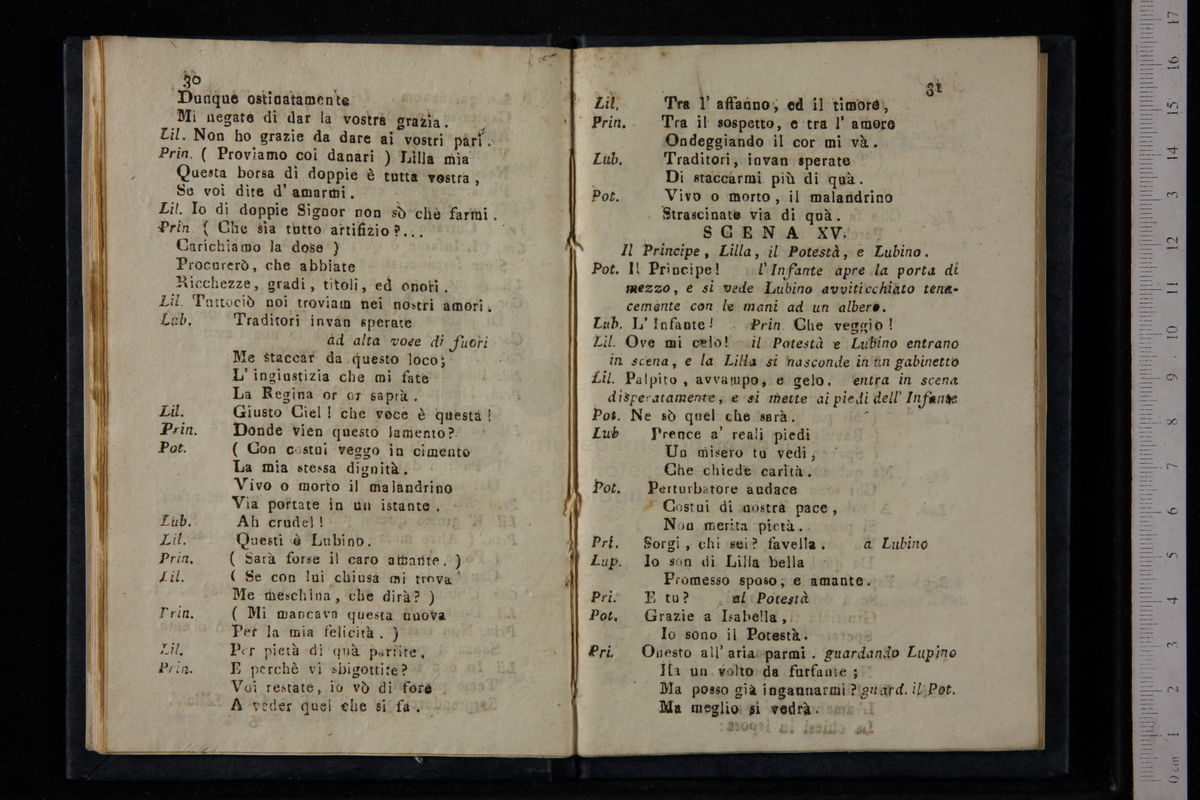 30
Dunque ostinatamente
Mi negate di dar la vostra grazia.
Lil. Non ho grazie da dare ai vostri pari.
Prin. ( Proviamo coi danari ) Lilla mia
Questa borsa di doppie è tutta vostra,
Se voi dite d' amarmi.
Lil. Io di doppie Signor non sò che farmi.
Prin. ( Che sia tutto artifizio?...
Carichiamo la dose )
Procurerò, che abbiate
Ricchezze, gradi, titoli, ed onori.
Lil. Tuttociò noi troviam nei nostri amori.
Lub. Traditori invan sperate
ad alta voce di fuori
Me staccar da questo loco;
L' ingiustizia che mi fate
La Regina or or saprà.
Lil. Giusto Ciel! che voce è questa!
Prin. Donde vien questo lamento?
Pot. ( Con costui veggo in cimento
La mia stessa dignità.
Vivo o morto il malandrino
Via portate in un istante.
Lub. Ah crudel!
Lil. Questi è Lubino.
Prin. ( Sarà forse il caro amante. )
Lil. ( Se con lui chiusa mi trova
Me meschina, che dirà? )
Prin. ( Mi mancava questa nuova
Per la mia felicità. )
Lil. Per pietà di quà partite.
Prin. E perchè vi sbigottite?
Voi restate, io vò di fore
A veder quel che si fa.
31
Lil. Tra l' affanno, ed il timore,
Prin. Tra il sospetto, e tra l' amore
Ondeggiando il cor mi và.
Lub. Traditori, invan sperate
Di staccarmi più di quà.
Pot. Vivo o morto, il malandrino
Strascinate via di quà.
SCENA XV.
Il Principe, Lilla, il Potestà, e Lubino.
Pot. Il Principe! l' Infante apre la porta di
mezzo, e si vede Lubino avviticchiato tena-
cemente con le mani ad un albero.
Lub. L' Infante! Prin. Che veggio!
Lil. Ove mi celo! il Potestà e Lubino entrano
in scena, e la Lilla si nasconde in un gabinetto
Lil. Palpito, avvampo, e gelo. entra in scena
disperatamente, e si mette ai piedi dell' Infante
Pot. Ne sò quel che sarà.
Lub Prence a' reali piedi
Un misero tu vedi,
Che chiede carità.
Pot. Perturbatore audace
Costui di nostra pace,
Non merita pietà.
Pri. Sorgi, chi sei? favella. a Lubino
Lup. Io son di Lilla bella
Promesso sposo, e amante.
Pri. E tu? al Potestà
Pot. Grazie a Isabella,
Io sono il Potestà.
Pri. Questo all' aria parmi. guardando Lupino
Ha un volto da furfante;
Ma posso già ingannarmi? guard. il Pot.
Ma meglio si vedrà.